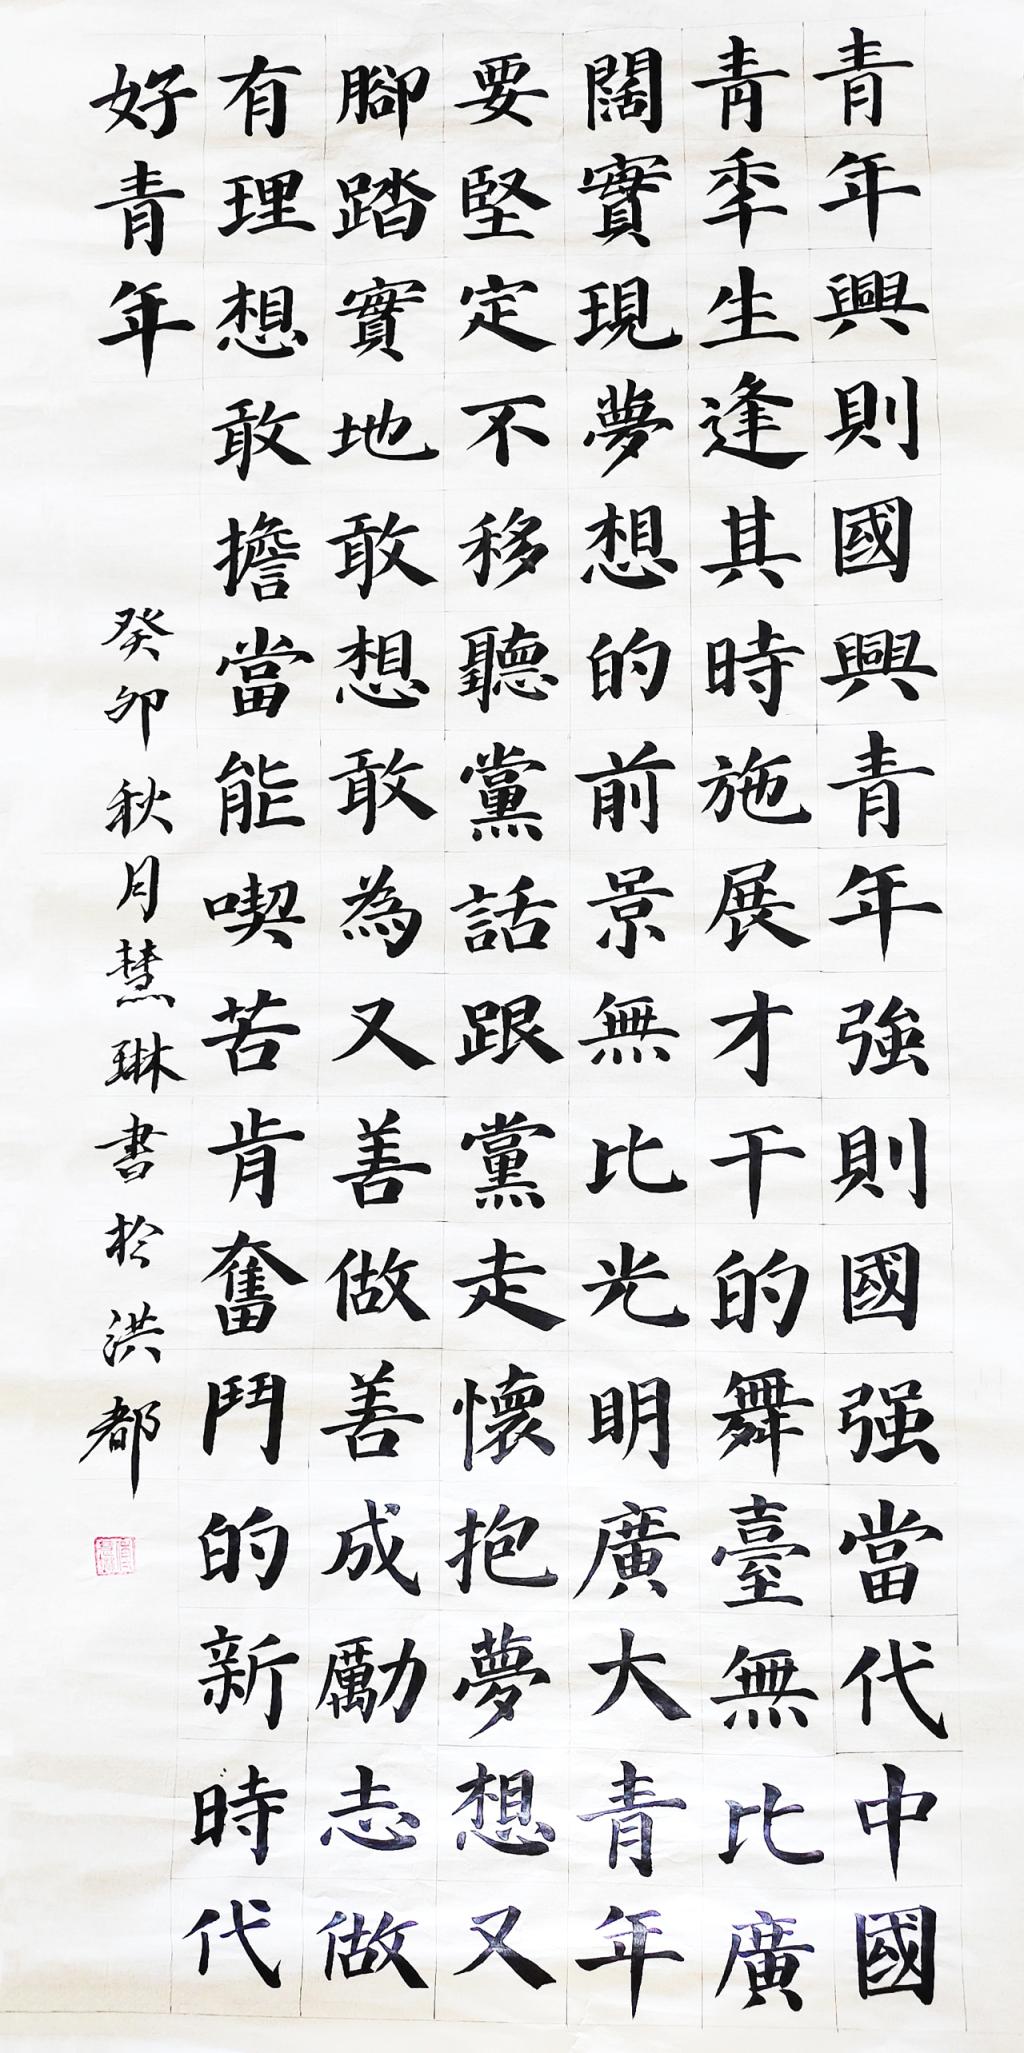 青年興則國興青年強則國强當代中國
青年生逢其時施展才干的舞臺無比廣
闊實現夢想的前景無比光明廣大青年
要堅定不移聽黨話跟黨走懷抱夢想又
腳踏實地敢想敢為又善做善成勵志做
有理想敢擔當能喫苦肯奮鬥的新時代
好青年
癸卯秋月慧琳書於洪都